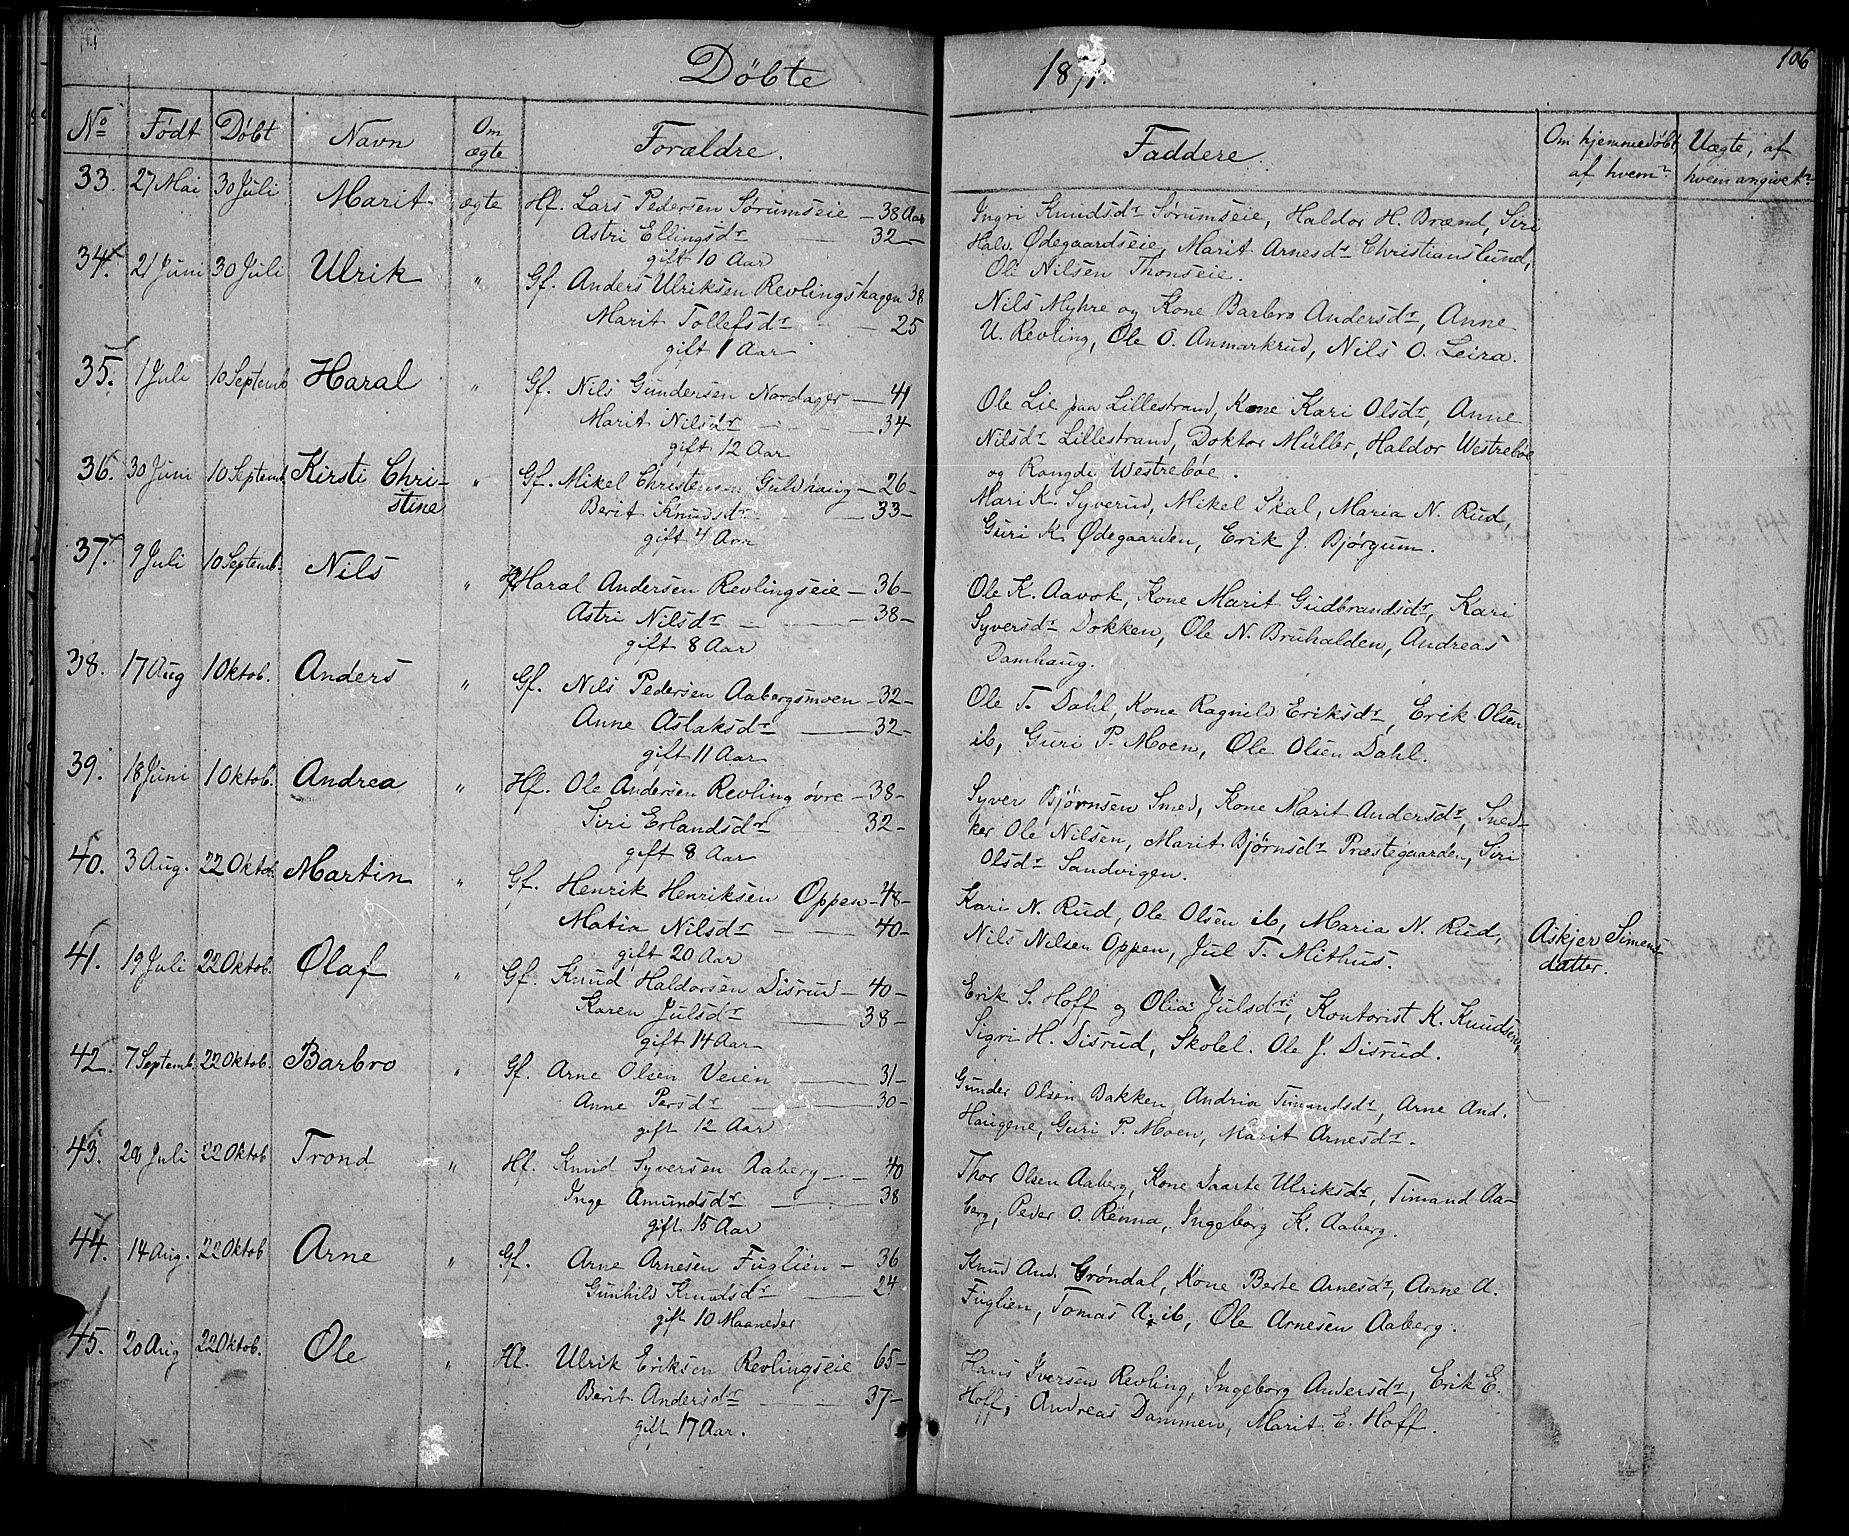 Døbte
1871.
106
No Født Døbt Navn Om ægte Forældre. Faddere. Om hjemmedøbt, af hvem? Uægte, af hvem angivet?
33. 27 Mai 30 Juli Marit ægte Hf. Lars Pedersen Sørumseie — 38 Aar
Astri Ellingsdr — 32 —
gift 10 Aar
Ingri Knudsdr Sørumseie, Haldor H. Brænd, Siri
Halv. Ødegaardseie, Marit Arnesdr Christianslund,
Ole Nilsen Thonseie.
34. 21 Juni 30 Juli Ulrik " Gf. Anders Ulriksen Revlingshagen 38
Marit Tollefsdr — 25
gift 1 Aar
Nils Myhre og Kone Barbro Andersdr, Anne
U. Revling, Ole O. Anmarkrud, Nils O. Leira.
35. 1 Juli 10 Septemb. Haral " Gf. Nils Gundersen Nordager — 41
Marit Nilsdr — 34
gift 12 Aar
Ole Lie paa Lillestrand, Kone Kari Olsdr, Anne
Nilsdr Lillestrand, Doktor Müller, Haldor Westrebøe
og Rangdi Westrebøe.
36. 30 Juni 10 Septemb. Kirsti Chri-
stine " Gf. Mikel Christensen Guldhaug — 26 —
Berit Knudsdr — 33 —
gift 4 Aar
Mari K. Syverud, Mikel Skal, Maria N. Rud,
Guri K. Ødegaarden, Erik J. Bjørgum.
37. 9 Juli 10 Septemb. Nils " Hf. Haral Andersen Revlingseie — 36 —
Astri Nilsdr — 38 —
gift 8 Aar
Ole K. Aavok, Kone Marit Gudbrandsdr, Kari
Syversdr Dokken, Ole N. Bruhalden, Andreas
Damhaug.
38. 17 Aug 1 Oktob. Anders " Gf. Nils Pedersen Aabergsmoen — 32 —
Anne Aslaksdr — 32 —
gift 11 Aar
Ole T. Dahl, Kone Ragnild Eriksdr, Erik Olsen
ib, Guri P. Moen, Ole Olsen Dahl.
39. 18 Juni 1 Oktob. Andrea " Hf. Ole Andersen Revling øvre — 38 —
Siri Erlandsdr 32 —
gift 8 Aar
Syver Bjørnsen Smed, Kone Marit Andersdr, Sned-
ker Ole Nilsen, Marit Bjørnsdr Præstegaarden, Siri
Olsdr Sandvigen.
40. 3 Aug. 22 Oktob. Martin " Gf. Henrik Henriksen Oppen — 48 —
Matia Nilsdr — 40 —
gift 20 Aar
Kari N. Rud, Ole Olsen ib, Maria N. Rud,
Nils Nilsen Oppen, Jul T. Mithus.
Askjer Simens-
datter.
41. 19 Juli 22 Oktob. Olaf " Gf. Knud Haldorsen Disrud — 40 —
Karen Julsdr — 38 —
gift 14 Aar
Erik S. Hoff og Olia Julsdr, Kontorist K. Knudsen,
Sigri H. Disrud, Skolel. Ole J. Disrud.
42. 7 Septemb. 22 Oktob. Barbro " Gf. Arne Olsen Veien — 31 —
Anne Persdr — 30 —
gift 12 Aar
Gunder Olsen Bakken, Andria Timandsdr, Arne And.
Haugene, Guri P. Moen, Marit Arnesdr.
43. 28 Juli 22 Oktob Trond " Hf. Knud Syversen Aaberg — 40
Inge Amundsdr — 38
gift 15 Aar
Thor Olsen Aaberg, Kone Daarte Ulriksdr, Timand Aa-
berg, Peder O. Renna, Ingeborg K. Aaberg.
44. 14 Aug. 22 Oktob Arne " Gf. Arne Arnesen Fuglien — 36
Gunhild Knudsdr — 24
gift 10 Maaneder
Knud And. Grøndal, Kone Berte Arnesdr, Anne A.
Fuglien, Tomas A. ib, Ole Arnesen Aaberg.
45. 20 Aug 22 Oktob. Ole " Hf. Ulrik Eriksen Revlingseie 65 —
Berit Andersdr — 37 —
gift 17 Aar.
Hans Iversen Revling, Ingeborg Andersdr, Erik E.
Hoff, Andreas Dammen, Marit E. Hoff.